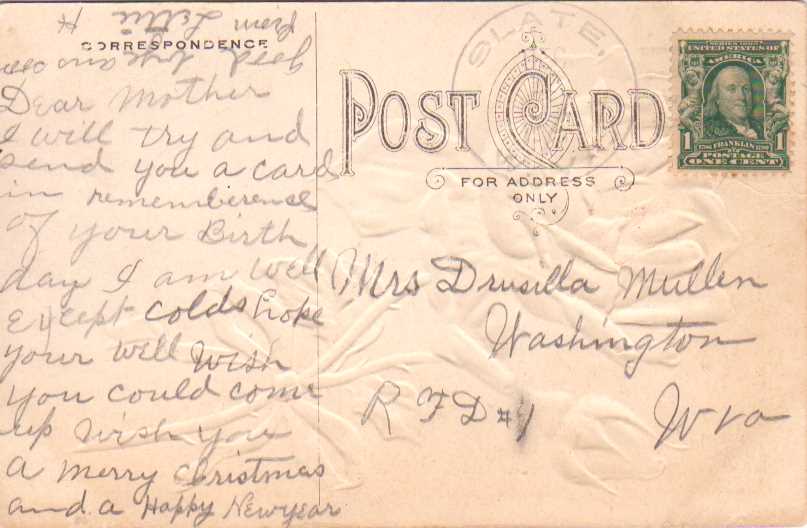 CORRESPONDENCE
Dear Mother
I will try and
send you a card
in rememberence
of your Birth
day I am well
Except colds hope
your well wish
you could come
up wish you
a merry christmas
and a Happy New year
good
from Lettie
SLATE,
POST CARD
FOR ADDRESS
ONLY
Mrs Drusilla Mullen
Washington
R F D #1
W va
SERIES 1902
UNITED STATES OF
AMERICA
1 FRANKLIN 1
POSTAGE
ONE CENT